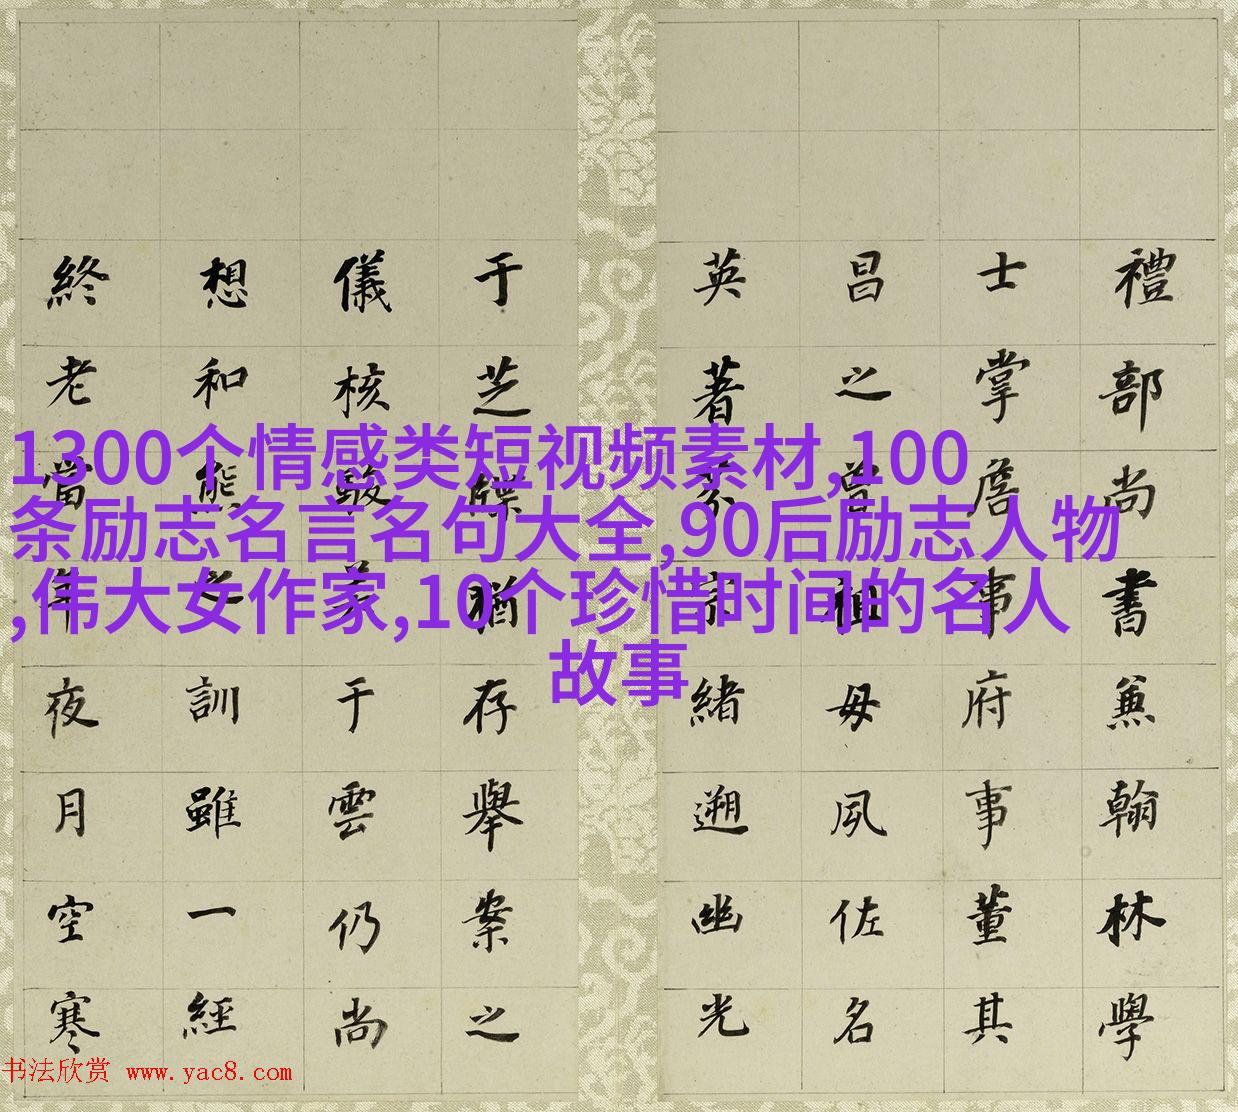 禮部尚書兼翰林學
士掌詹事府事董其
昌之曾祖母夙佐名
英著宗緒遡幽光
于芝牒猶存舉案之
儀核于雲仍尚
想和熊之訓雖一經
終老當年夜月空寒
1300个情感类短视频素材,100
条励志名言名句大全,90后励志人物
,伟大女作家,10个珍惜时间的名人
故事
书法欣赏 www.yac8.com